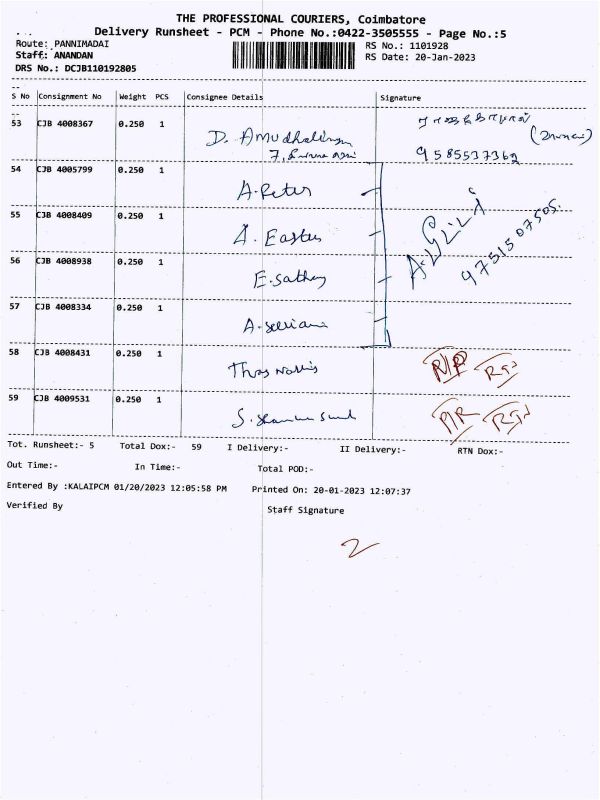 THE PROFESSIONAL COURIERS, Coimbatore
Delivery Runsheet - PCM - Phone No.:0422-3505555 - Page No.:5
Route: PANNIMADAI
RS No.: 1101928
Staff: ANANDAN
RS Date: 20-Jan-2023
DRS No.: DCJB110192805
S No Consignment No Weight PCS Consignee Details Signature
53 CJB 4008367 0.250 1 D. Amudhalingam
9585537362
54 CJB 4005799 0.250 1 A. Peter
55 CJB 4008409 0.250 1 A. Easter
9751507505.
56 CJB 4008938 0.250 1 E. Sathey
57 CJB 4008334 0.250 1
58 CJB 4008431 0.250 1
59 CJB 4009531 0.250 1 S.
Tot. Runsheet:- 5 Total Dox:- 59 I Delivery:- II Delivery:- RTN Dox:-
Out Time:- In Time:- Total POD:-
Entered By :KALAIPCM 01/20/2023 12:05:58 PM Printed On: 20-01-2023 12:07:37
Verified By Staff Signature
2